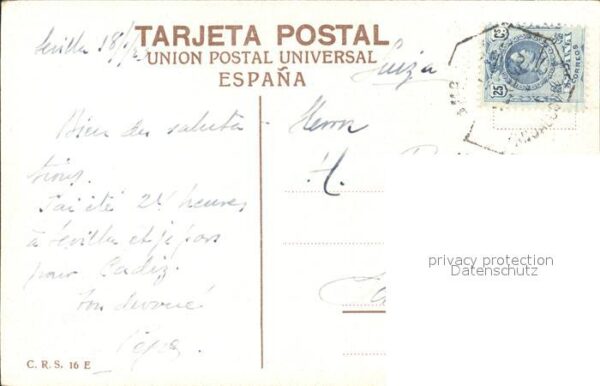 TARJETA POSTAL
Sevilla 18/
UNION POSTAL UNIVERSAL
Suiza
ESPAÑA
25 25
CORREOS
Bien des saluta
tions.
J'ai été 24 heures
à Sevilla et je pars
pour Cadiz.
Ton dévoué
Herrn
H.
privacy protection
Datenschutz
C. R. S. 16 E